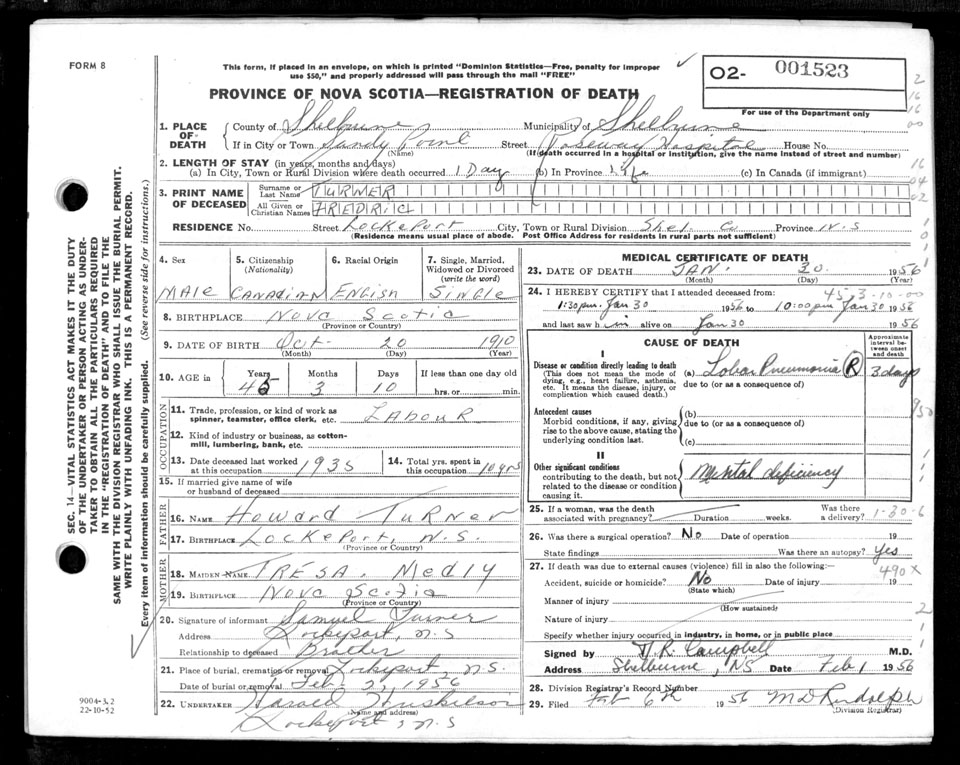 FORM 8
This form, if placed in an envelope, on which is printed "Dominion Statistics—Free, penalty for improper
use $50," and properly addressed will pass through the mail "FREE"
02- 001523
For use of the Department only
PROVINCE OF NOVA SCOTIA—REGISTRATION OF DEATH
1. PLACE OF DEATH County of Shelburne Municipality of Shelburne
If in City or Town Sandy Point Street Roseway Hospital House No.
(Name) (If death occurred in a hospital or institution, give the name instead of street and number)
2. LENGTH OF STAY (in years, months and days)
(a) In City, Town or Rural Division where death occurred 1 Day (b) In Province life (c) In Canada (if immigrant)
3. PRINT NAME OF DECEASED Surname or Last Name TURNER
All Given or Christian Names FREDRIC
RESIDENCE No. Street Lockeport City, Town or Rural Division Shel. Co Province N.S
(Residence means usual place of abode. Post Office Address for residents in rural parts not sufficient)
4. Sex Male
5. Citizenship (Nationality) Canadian
6. Racial Origin English
7. Single, Married, Widowed or Divorced (write the word) Single
8. BIRTHPLACE Nova Scotia
(Province or Country)
9. DATE OF BIRTH Oct. 20 1910
(Month) (Day) (Year)
10. AGE in Years 45 Months 3 Days 10 If less than one day old hrs. or min.
OCCUPATION
11. Trade, profession, or kind of work as spinner, teamster, office clerk, etc. Labour
12. Kind of industry or business, as cotton-mill, lumbering, bank, etc.
13. Date deceased last worked at this occupation 1935
14. Total yrs. spent in this occupation 10 yrs
15. If married give name of wife or husband of deceased
FATHER
16. NAME Howard Turner
17. BIRTHPLACE Lockeport, N.S.
(Province or Country)
MOTHER
18. MAIDEN NAME Tresa. Medly
19. BIRTHPLACE Nova Scotia
(Province or Country)
20. Signature of informant Samuel Turner
Address Lockeport, N.S
Relationship to deceased Brother
21. Place of burial, cremation or removal Lockeport N.S.
Date of burial or removal Feb. 2, 1956
22. UNDERTAKER Harold
(Name and address)
Lockeport, N.S
MEDICAL CERTIFICATE OF DEATH
23. DATE OF DEATH JAN. 30. 1956
(Month) (Day) (Year)
24. I HEREBY CERTIFY that I attended deceased from: 45-3-10-00
1:30 pm. Jan 30 1956 to 10:00 pm Jan 30 1956
and last saw him alive on Jan 30 1956
CAUSE OF DEATH
Approximate interval between onset and death
I
Disease or condition directly leading to death
(This does not mean the mode of dying, e.g., heart failure, asthenia, etc. It means the disease, injury, or complication which caused death.)
(a) Lobar Pneumonia (R) 3 days
due to (or as a consequence of)
Antecedent causes
Morbid conditions, if any, giving rise to the above cause, stating the underlying condition last.
(b)
due to (or as a consequence of)
(c)
II
Other significant conditions
contributing to the death, but not related to the disease or condition causing it.
Mental deficiency
25. If a woman, was the death associated with pregnancy? Duration weeks. Was there a delivery? 1-30-6
26. Was there a surgical operation? No Date of operation 19
State findings Was there an autopsy? Yes
27. If death was due to external causes (violence) fill in also the following:— 490X
Accident, suicide or homicide? No Date of injury 19
(State which)
Manner of injury
(How sustained)
Nature of injury
Specify whether injury occurred in industry, in home, or in public place
Signed by Campbell M.D.
Address Shelburne, NS Date Feb 1 1956
28. Division Registrar's Record Number
29. Filed Feb 6th 1956
(Division Registrar)
SEC. 14—VITAL STATISTICS ACT MAKES IT THE DUTY
OF THE UNDERTAKER OR PERSON ACTING AS UNDER-
TAKER TO OBTAIN ALL THE PARTICULARS REQUIRED
IN THE "REGISTRATION OF DEATH" AND TO FILE THE
SAME WITH THE DIVISION REGISTRAR WHO SHALL ISSUE THE BURIAL PERMIT.
WRITE PLAINLY WITH UNFADING INK. THIS IS A PERMANENT RECORD.
Every item of information should be carefully supplied. (See reverse side for instructions.)
9004-3.2
22-10-52